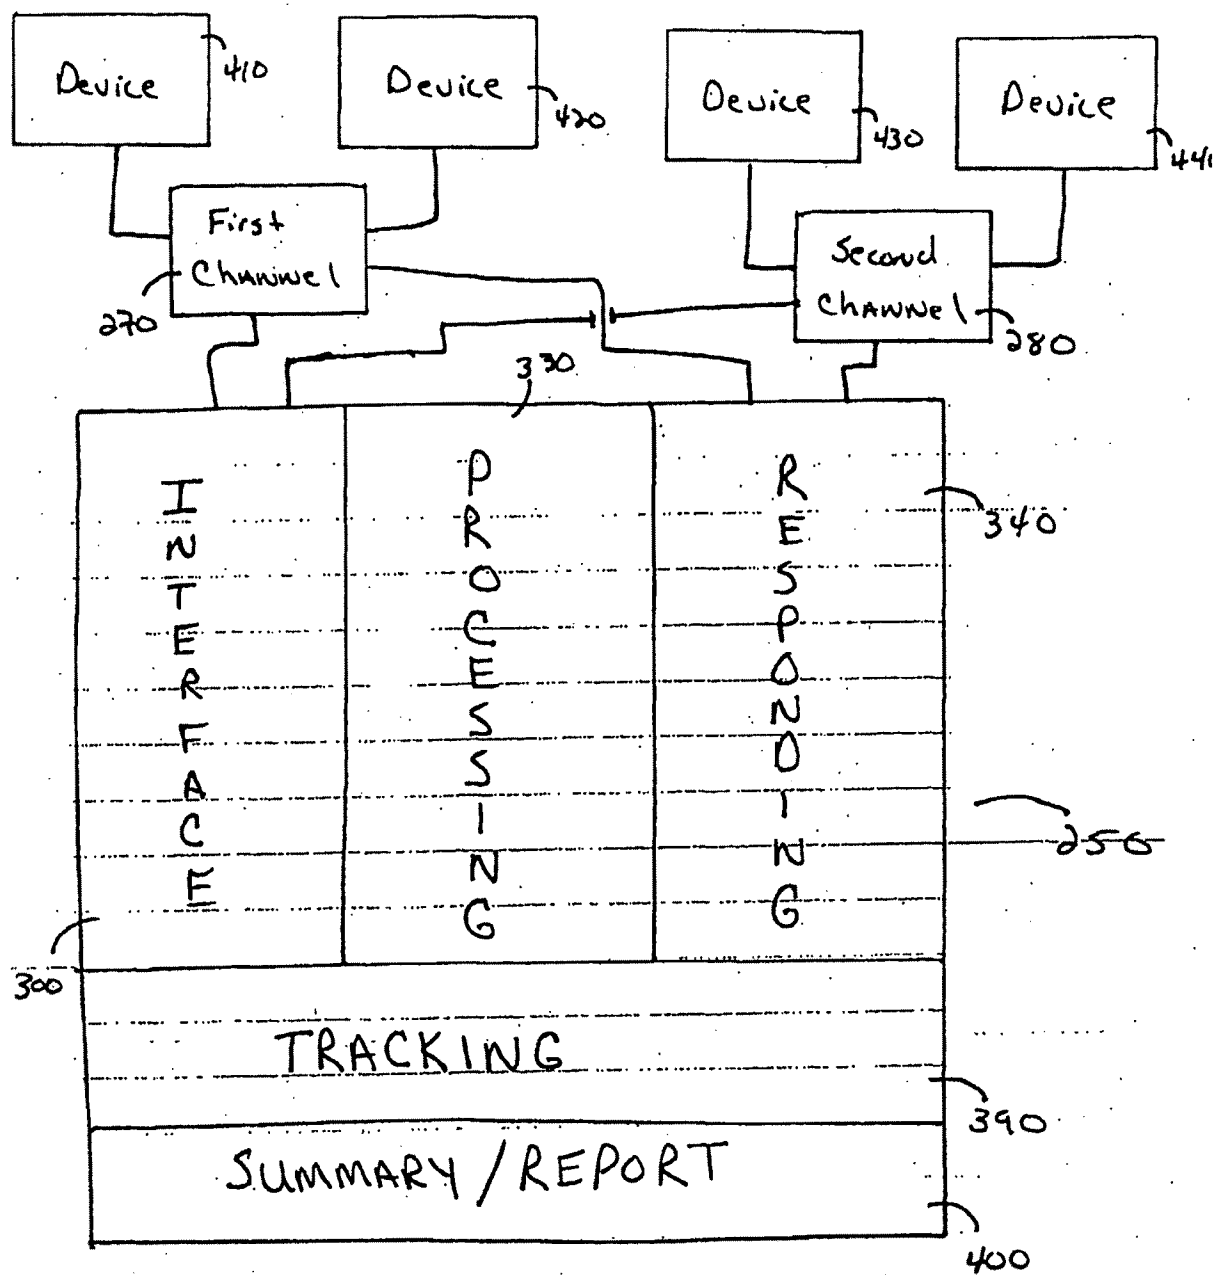 Device
410
Device
420
Device
430
Device
440
First
Channel
270
Second
Channel
280
330
INTERFACE
PROCESSING
RESPONDING
340
250
300
TRACKING
390
SUMMARY/REPORT
400